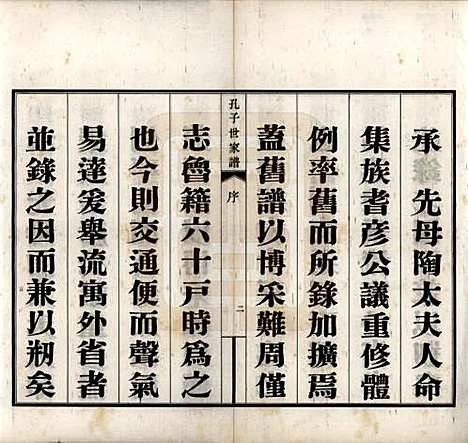 承　先母陶太夫人命
集族耆彦公議重修體
例率舊而所錄加擴焉
蓋舊譜以博采難周僅
孔子世家譜　序　二
志魯籍六十戶時爲之
也今則交通便而聲氣
易達爰舉流寓外省者
並錄之因而兼以剏矣